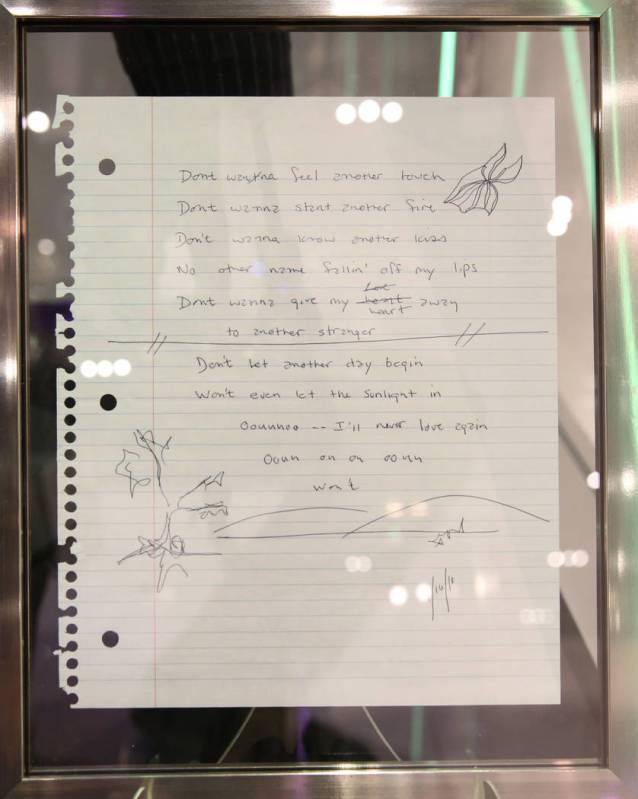 Dont wanna feel another touch
Dont wanna start another fire
Don't wanna know another kiss
No other name fallin' off my lips
Dont wanna give my heart heart away
to another stranger
Don't let another day begin
Won't even let the sunlight in
Oouuhoo -- I'll never love again
Oouu oh oh oouuu
won't